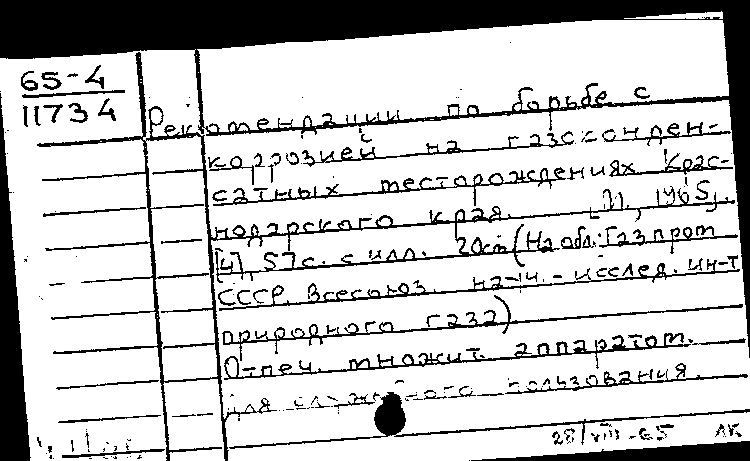 65-4
11734
Рекомендации по борьбе с
коррозией на газоконден-
сатных месторождениях Крас-
нодарского края. М., 1965.
[4], 57с. с илл. 20см (На обл.: Газпром
СССР. Всесоюз. науч.-исслед. ин-т
природного газа)
Отпеч. множит. аппаратом.
Для служебного пользования.
28/VIII-65 АК